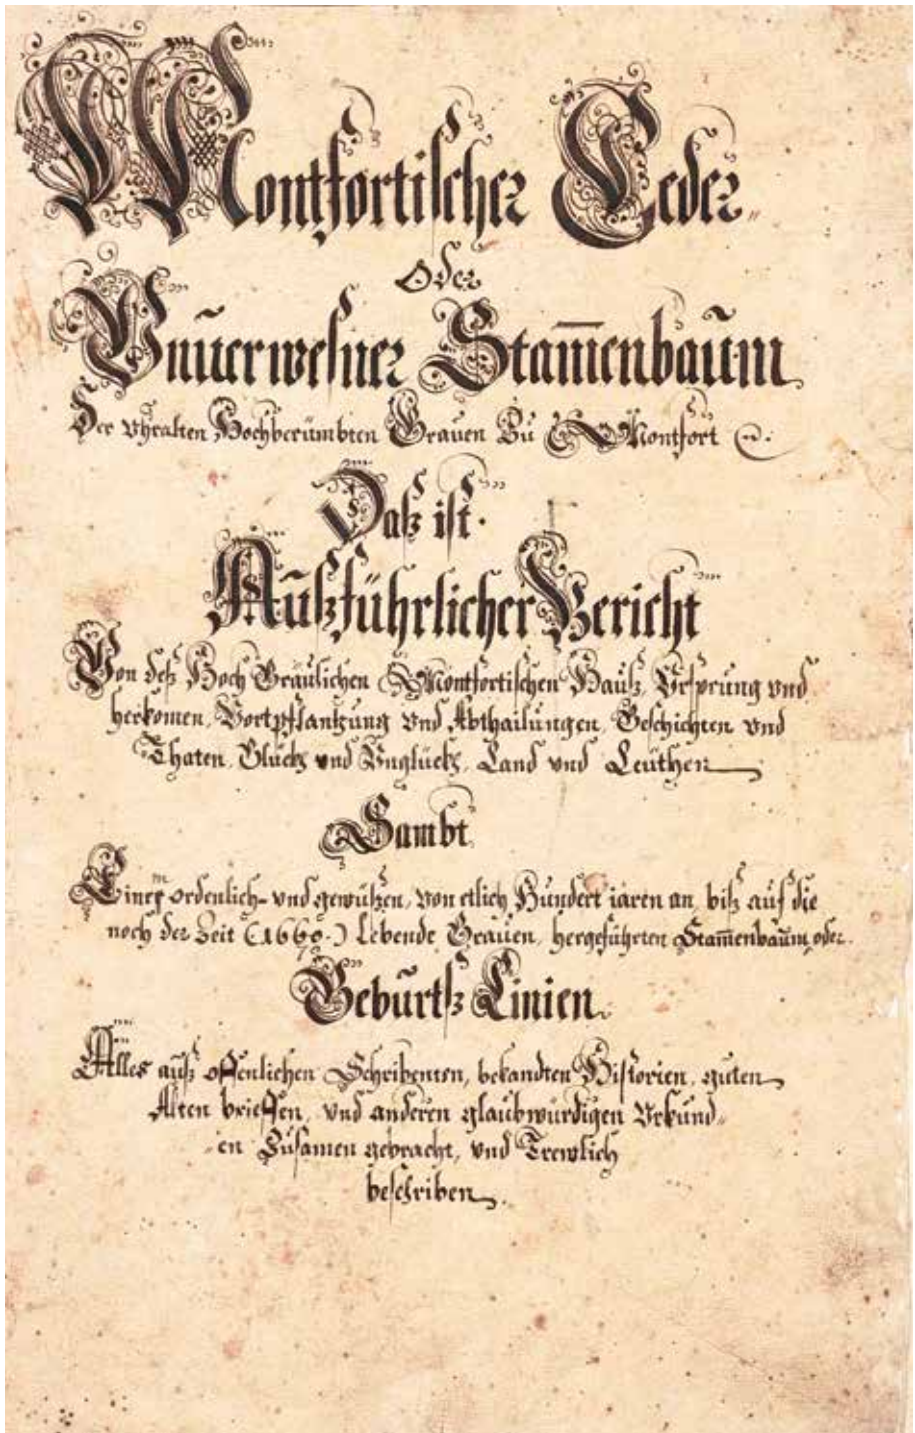 Montfortischer Ceder
Oder
Vnuerwesner Stam̄enbaum
Der Vhralten Hochberümbten Grauen Zu Montfort
Daß ist.
Außführlicher Bericht
Von deß Hoch Gräulichen Montfortischen Hauß, Vrsprung vnd
herkomen, Vortpflantzung Vnd Abthailungen, Geschichten vnd
Thaten, Glückh vnd Vnglückh, Land vnd Leüthen
Sambt
ordenlich= vnd gewüßen, von etlich Hundert iaren an, biß auf die
noch der Zeit (1660.) Lebende Grauen, hergeführten Stam̄enbaum, oder
Geburtß Linien.
Alles auß offenlichen Schribenten, bekandten Historien, guten
Alten brieffen, Vnd anderen glaubwürdigen Vrkund=
=en Zusamen gebracht, vnd Trewlich
beschriben.